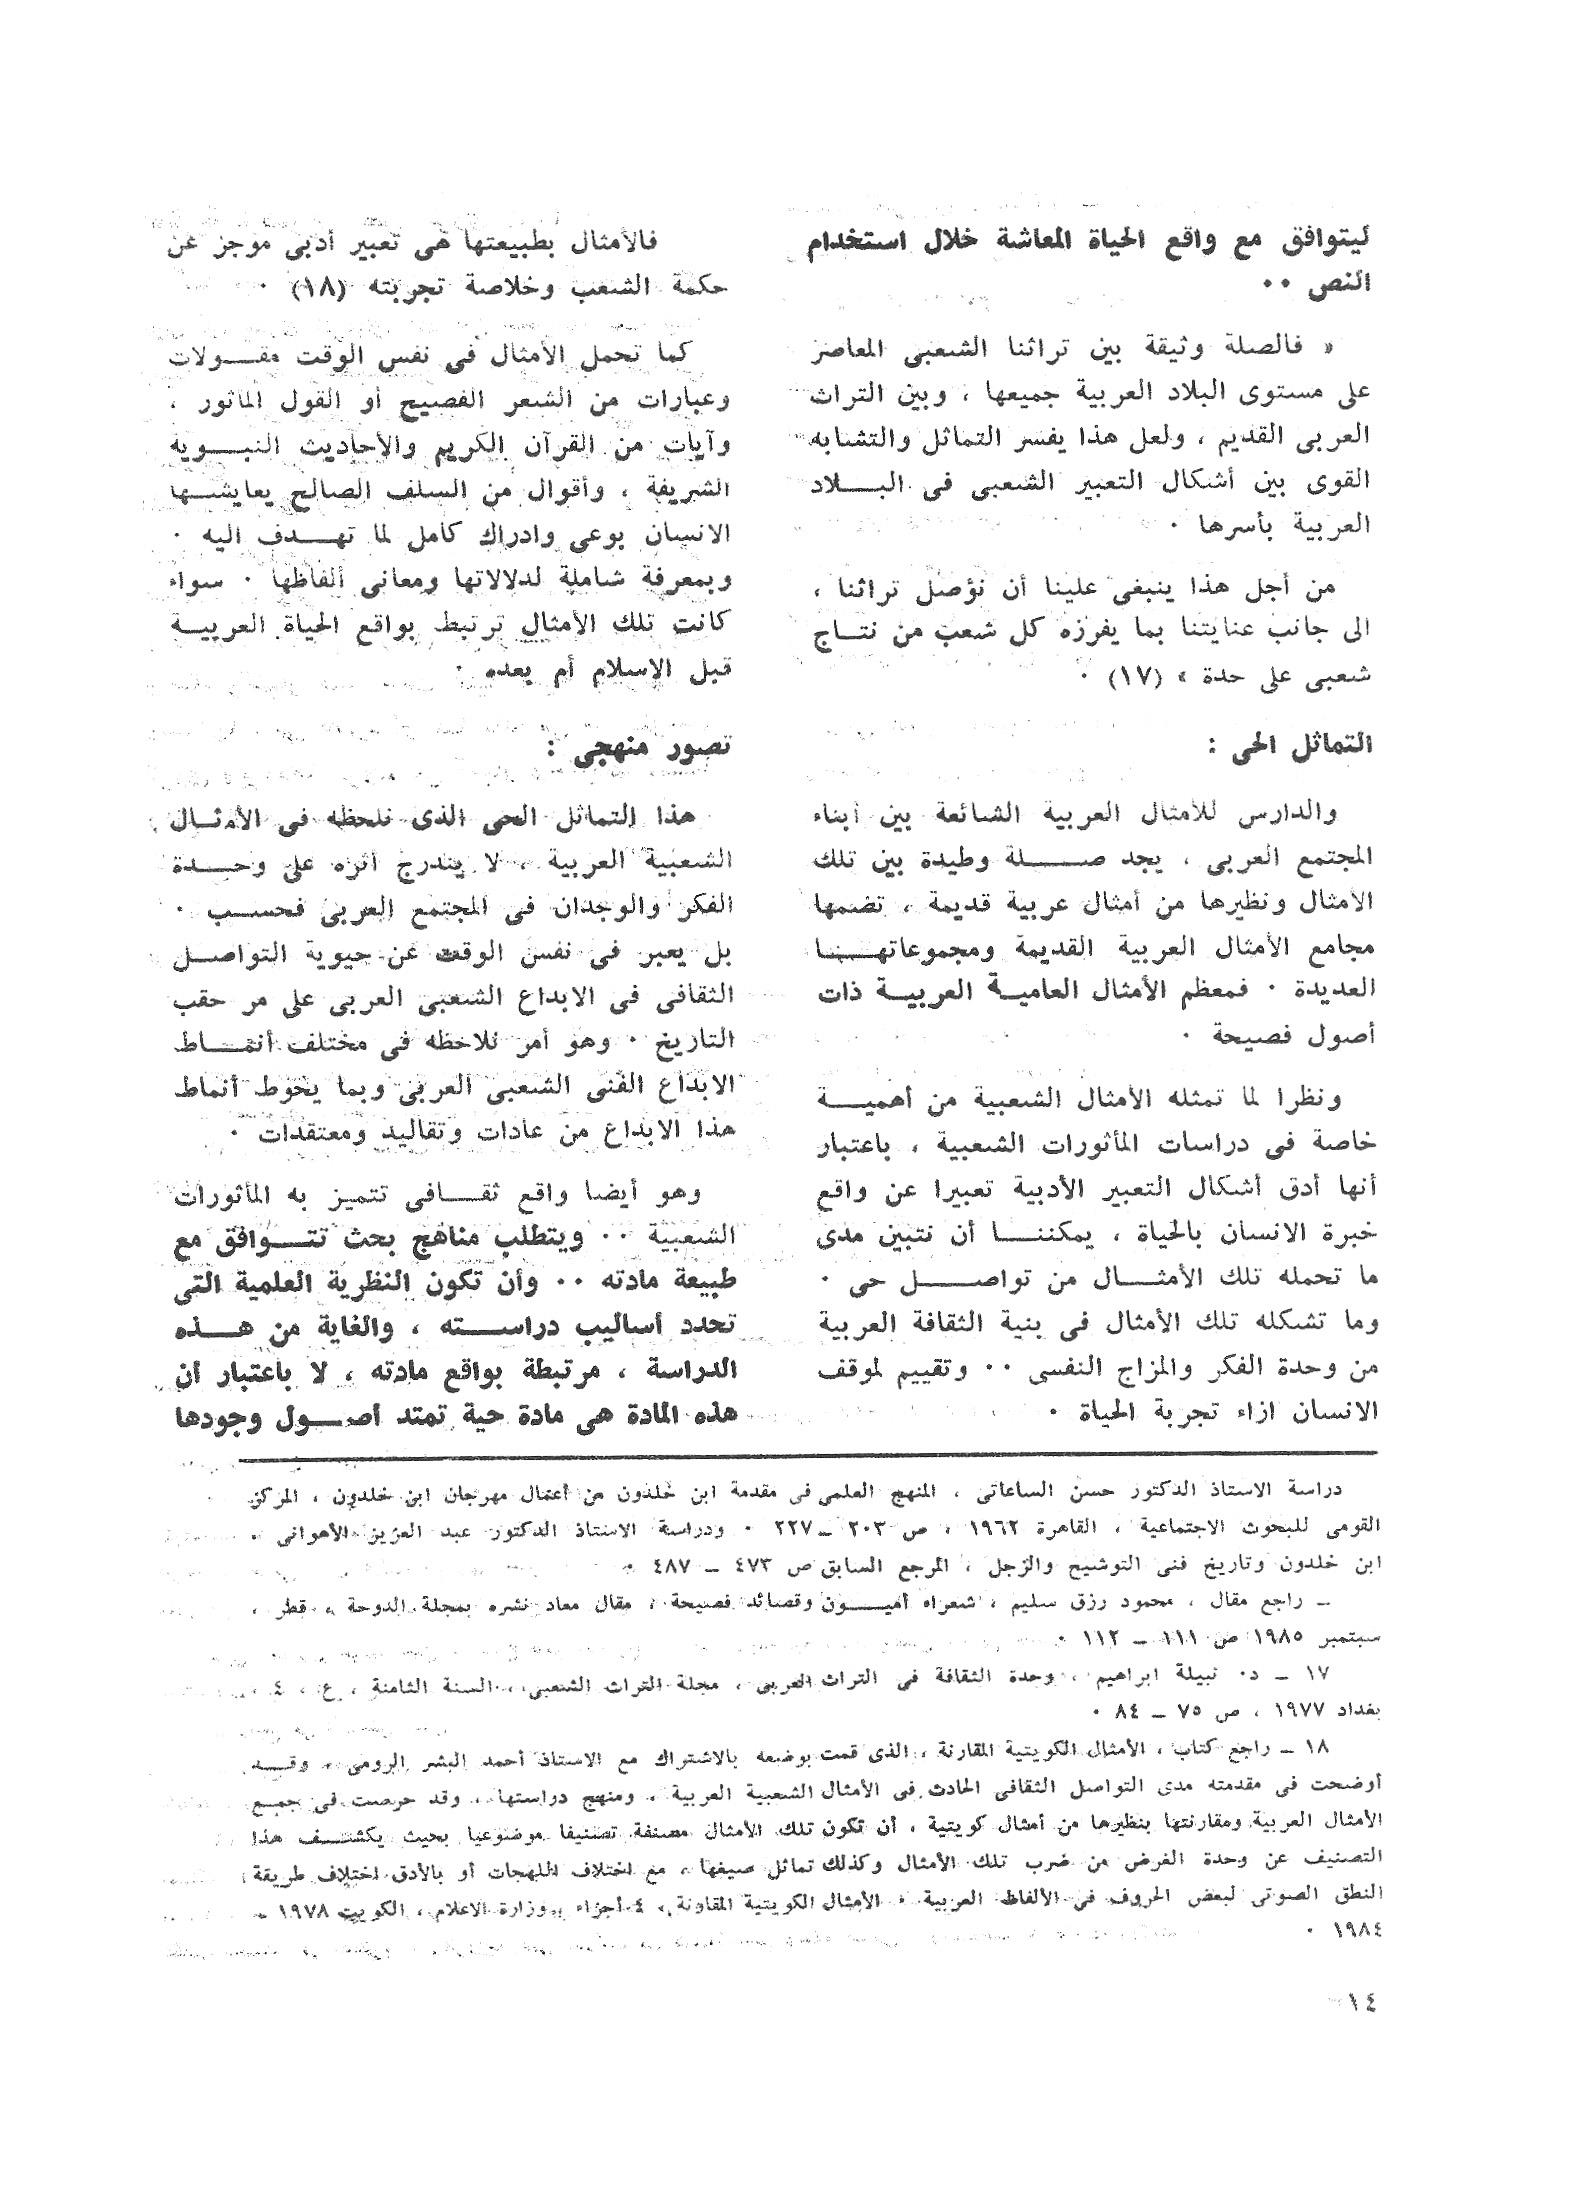 ليتوافق مع واقع الحياة المعاشة خلال استخدام
النص ٠٠
« فالصلة وثيقة بين تراثنا الشعبى المعاصر
على مستوى البلاد العربية جميعها ، وبين التراث
العربى القديم ، ولعل هذا يفسر التماثل والتشابه
القوى بين أشكال التعبير الشعبى فى البلاد
العربية بأسرها ٠
من أجل هذا ينبغى علينا أن نؤصل تراثنا ،
الى جانب عنايتنا بما يفرزه كل شعب من نتاج
شعبى على حدة » (١٧) ٠
التماثل الحى :
والدارس للأمثال العربية الشائعة بين أبناء
المجتمع العربى ، يجد صلة وطيدة بين تلك
الأمثال ونظيرها من أمثال عربية قديمة ، تضمها
مجامع الأمثال العربية القديمة ومجموعاتها
العديدة ٠ فمعظم الأمثال العامية العربية ذات
أصول فصيحة ٠
ونظرا لما تمثله الأمثال الشعبية من أهمية
خاصة فى دراسات المأثورات الشعبية ، باعتبار
أنها أدق أشكال التعبير الأدبية تعبيرا عن واقع
خبرة الانسان بالحياة ، يمكننا أن نتبين مدى
ما تحمله تلك الأمثال من تواصل حى ٠
وما تشكله تلك الأمثال فى بنية الثقافة العربية
من وحدة الفكر والمزاج النفسى ٠٠ وتقييم لموقف
الانسان ازاء تجربة الحياة ٠
فالأمثال بطبيعتها هى تعبير أدبى موجز عن
حكمة الشعب وخلاصة تجربته (١٨) ٠
كما تحمل الأمثال فى نفس الوقت مقولات
وعبارات من الشعر الفصيح أو القول المأثور ،
وآيات من القرآن الكريم والأحاديث النبوية
الشريفة ، وأقوال من السلف الصالح يعايشها
الانسان بوعى وادراك كامل لما تهدف اليه ٠
وبمعرفة شاملة لدلالاتها ومعانى ألفاظها ٠ سواء
كانت تلك الأمثال ترتبط بواقع الحياة العربية
قبل الاسلام أم بعده ٠
تصور منهجى :
هذا التماثل الحى الذى نلحظه فى الأمثال
الشعبية العربية ، لا يندرج أثره على وحدة
الفكر والوجدان فى المجتمع العربى فحسب ٠
بل يعبر فى نفس الوقت عن حيوية التواصل
الثقافى فى الابداع الشعبى العربى على مر حقب
التاريخ ٠ وهو أمر نلاحظه فى مختلف أنماط
الابداع الفنى الشعبى العربى وبما يحوط أنماط
هذا الابداع من عادات وتقاليد ومعتقدات ٠
وهو أيضا واقع ثقافى تتميز به المأثورات
الشعبية ٠٠ ويتطلب مناهج بحث تتوافق مع
طبيعة مادته ٠٠ وأن تكون النظرية العلمية التى
تحدد أساليب دراسته ، والغاية من هذه
الدراسة ، مرتبطة بواقع مادته ، لا باعتبار أن
هذه المادة هى مادة حية تمتد أصول وجودها
دراسة الاستاذ الدكتور حسن الساعاتى ، المنهج العلمى فى مقدمة ابن خلدون من أعمال مهرجان ابن خلدون ، المركز
القومى للبحوث الاجتماعية ، القاهرة ١٩٦٢ ، ص ٢٠٣ ــ ٢٢٧ ٠ ودراسة الاستاذ الدكتور عبد العزيز الأهوانى ٠
ابن خلدون وتاريخ فنى التوشيح والزجل ، المرجع السابق ص ٤٧٣ ــ ٤٨٧ ٠
ــ راجع مقال ، محمود رزق سليم ، شعراء أميون وقصائد فصيحة ، مقال معاد نشره بمجلة الدوحة ، قطر ،
سبتمبر ١٩٨٥ ص ١١١ ــ ١١٢ ٠
١٧ ــ د٠ نبيلة ابراهيم ، وحدة الثقافة فى التراث العربى ، مجلة التراث الشعبى ، السنة الثامنة ، ع ، ٤ ،
بغداد ١٩٧٧ ، ص ٧٥ ــ ٨٤ ٠
١٨ ــ راجع كتاب ، الأمثال الكويتية المقارنة ، الذى قمت بوضعه بالاشتراك مع الاستاذ أحمد البشر الرومى ، وقد
أوضحت فى مقدمته مدى التواصل الثقافى الحادث فى الأمثال الشعبية العربية ، ومنهج دراستها ، وقد حرصت فى جمع
الأمثال العربية ومقارنتها بنظيرها من أمثال كويتية ، أن تكون تلك الأمثال مصنفة تصنيفا موضوعيا بحيث يكشف هذا
التصنيف عن وحدة الغرض من ضرب تلك الأمثال وكذلك تماثل صيغها ، مع اختلاف اللهجات أو بالأدق اختلاف طريقة
النطق الصوتى لبعض الحروف فى الألفاظ العربية ٠ الأمثال الكويتية المقارنة ، ٤ أجزاء ــ وزارة الاعلام ، الكويت ١٩٧٨ ــ
١٩٨٤ ٠
١٤